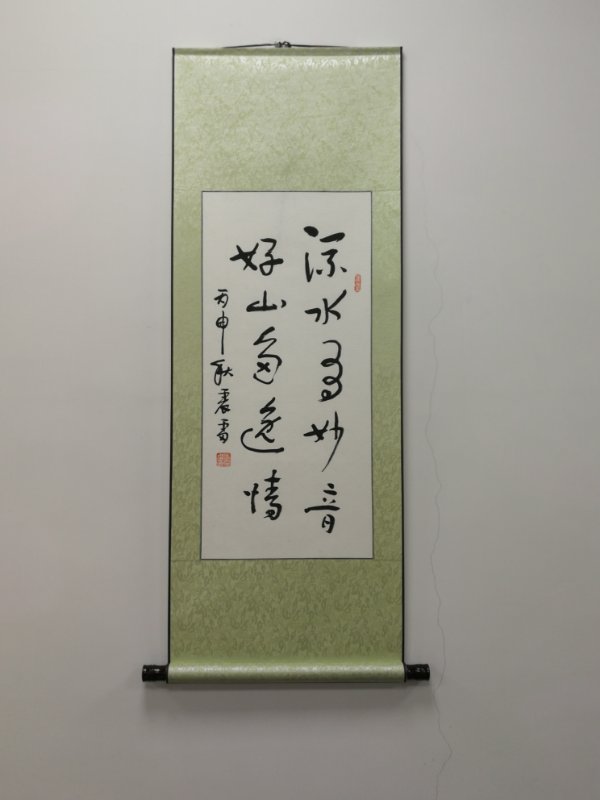 流水有妙音
好山多逸情
丙申秋震書